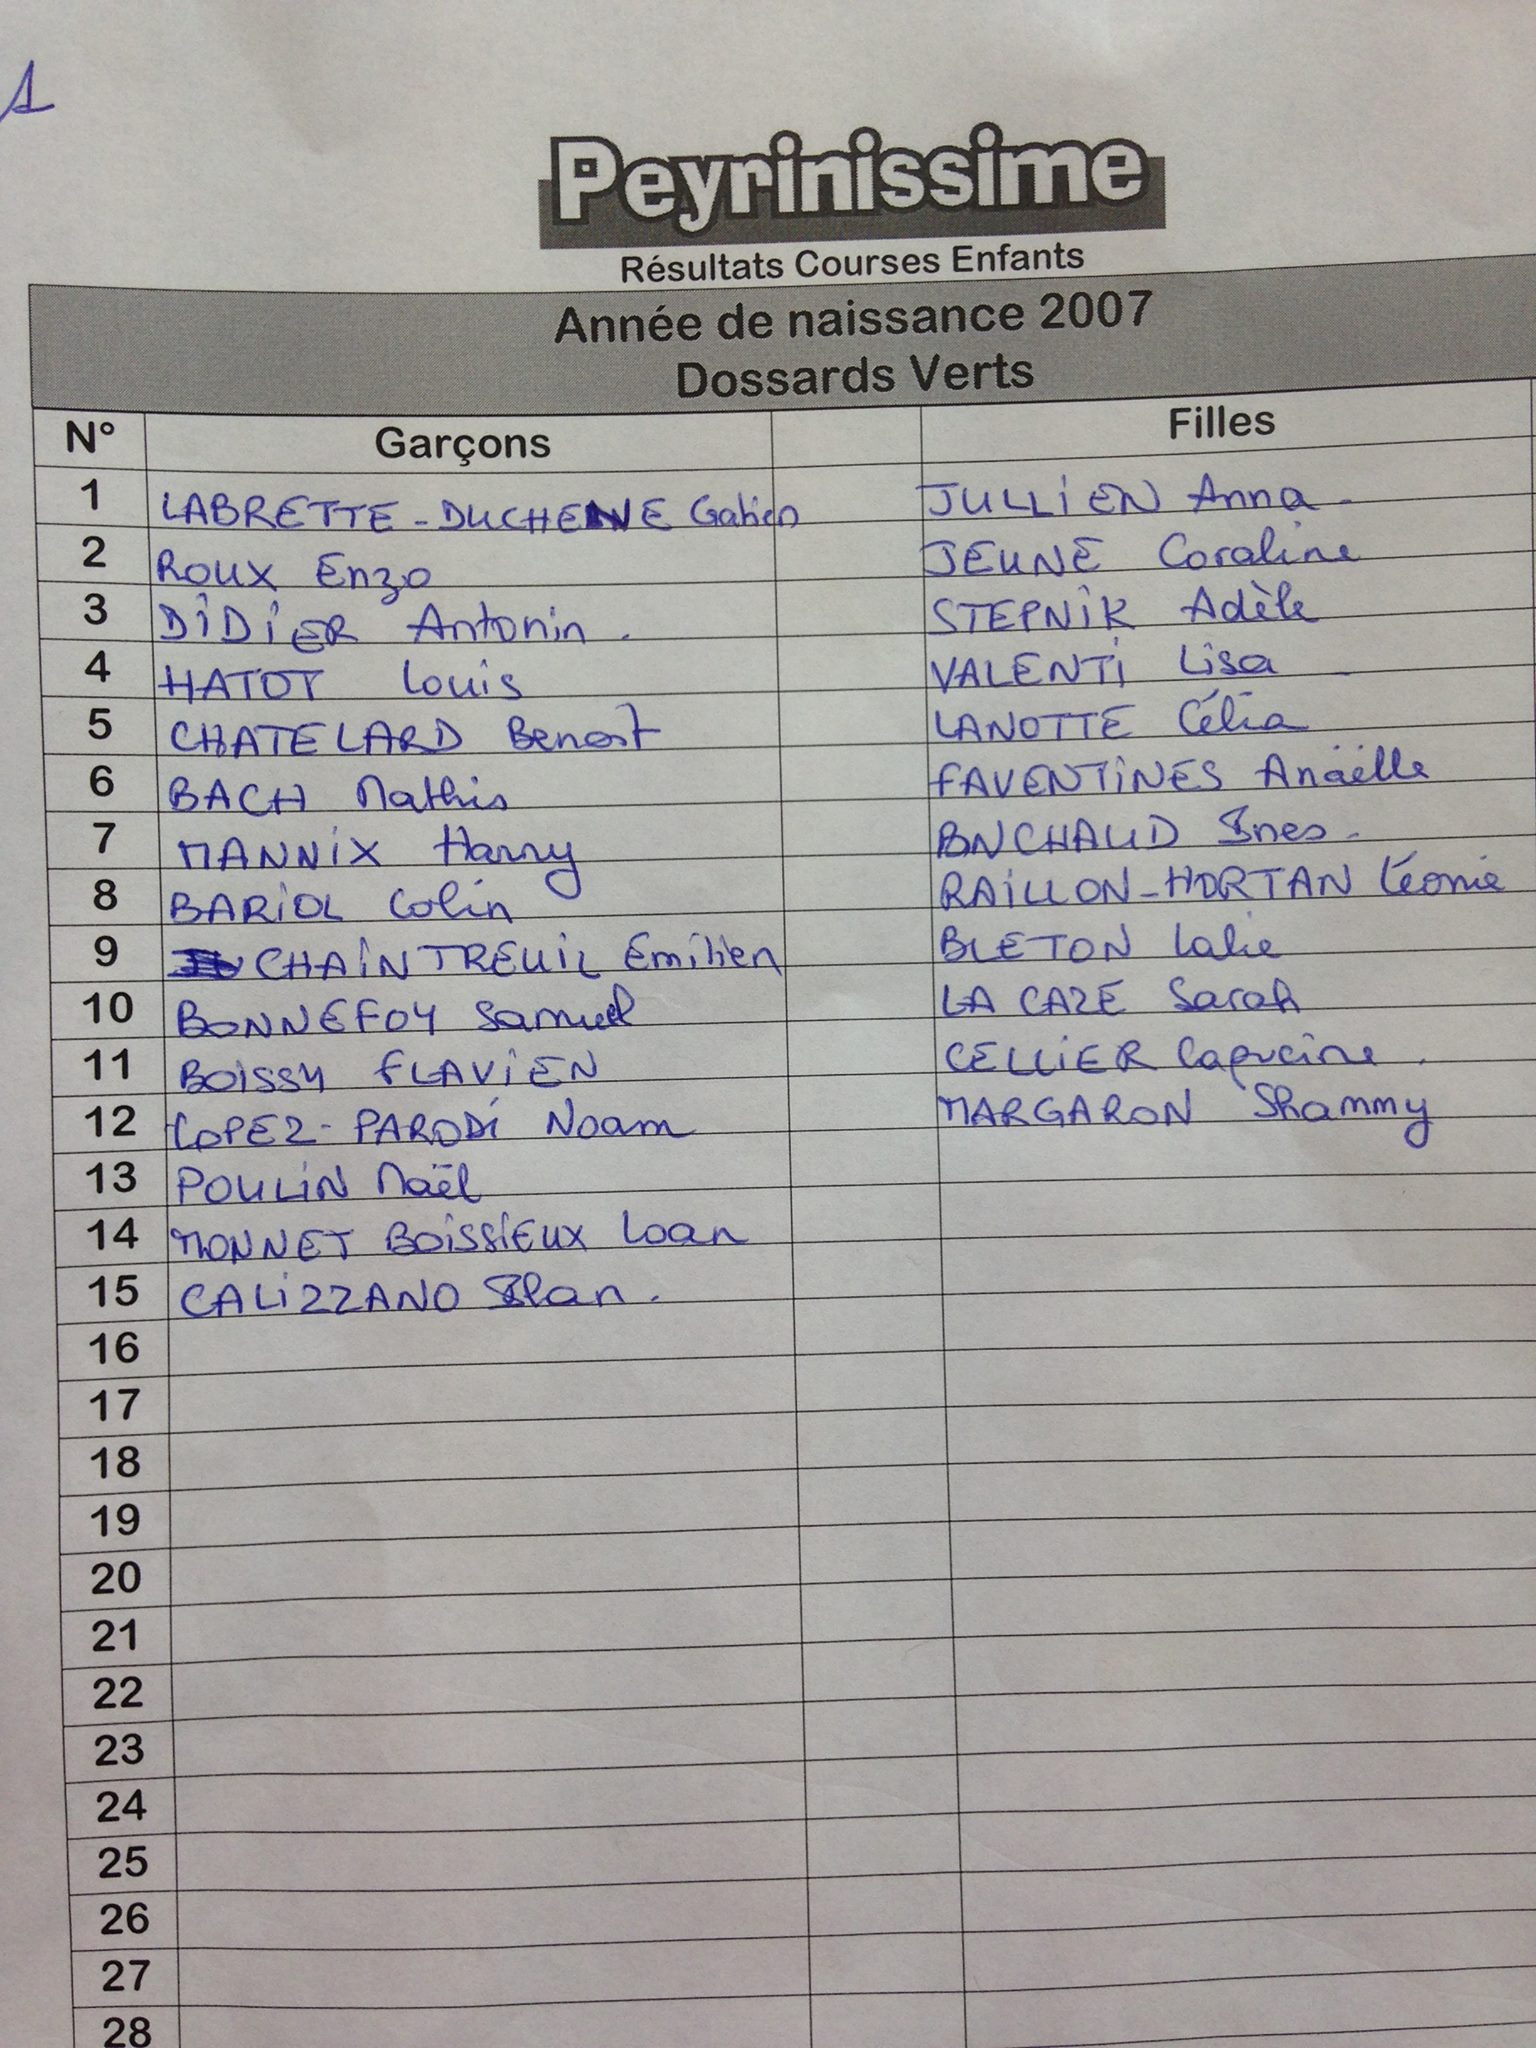 1
Peyrinissime
Résultats Courses Enfants
Année de naissance 2007
Dossards Verts
N° Garçons Filles
1 LABRETTE-DUCHENE Gatien JULLIEN Anna
2 ROUX Enzo JEUNE Coraline
3 DIDIER Antonin. STEPNIK Adèle
4 HATOT Louis VALENTI Lisa
5 CHATELARD Benoît LANOTTE Célia
6 BACH Mathis FAVENTINES Anaëlle
7 MANNIX Harry Ines.
8 BARIOL Colin RAILLON-HORTAN Léonie
9 CHAINTREUIL Emilien BLETON Lalie
10 BONNEFOY Samuel LA CAZE Sarah
11 BOISSY FLAVIEN CELLIER Capucine.
12 LOPEZ-PARODI Noam MARGARON Shammy
13 POULIN Maël
14 MONNET BOISSIEUX Loan
15 CALIZZANO Ilan.
16
17
18
19
20
21
22
23
24
25
26
27
28